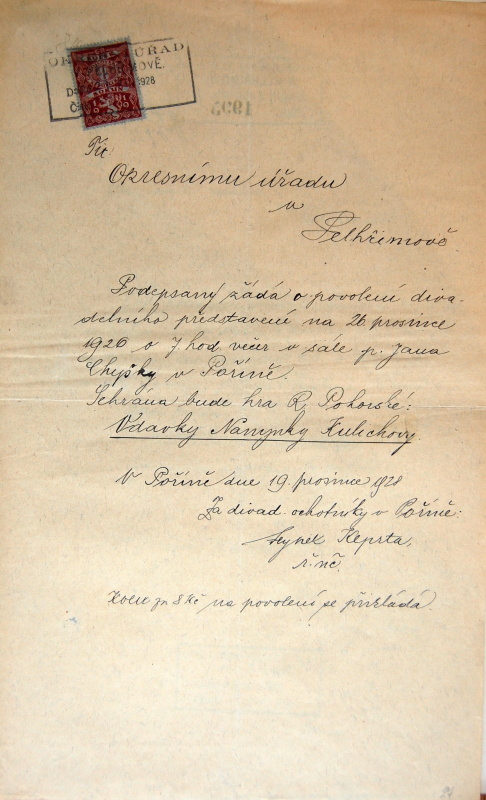 ÚŘAD
OVĚ.
1928
Tit.
Okresnímu úřadu
v
Pelhřimově.
Podepsaný žádá o povolení diva-
delního představení na 26 prosince
1926 o 7 hod večer v sále p. Jana
v Poříně.
Sehrána bude hra R. Pohorské:
Vdavky Nanynky Kulichovy
V Poříně dne 19. prosince 1928
Za divad. ochotníky v Poříně:
Hynek Keprta,
ř. uč.
Kolek za 8 Kč na povolení se přikládá.